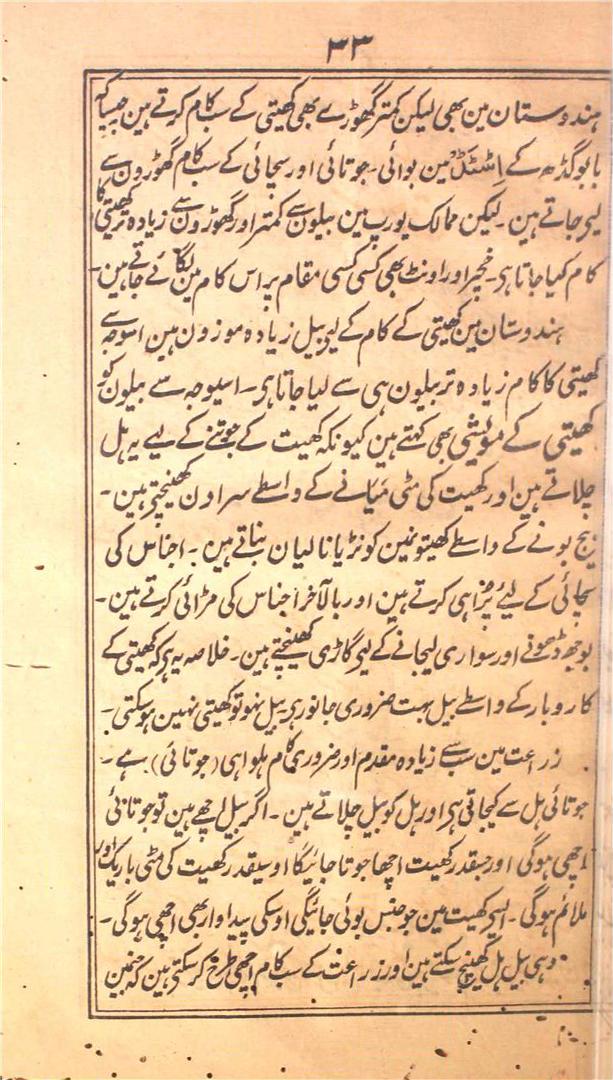 ۳۳
ہندوستان مین بھی لیکن کمتر گھوڑے بھی کھیتی کے سب کام کرتے ہین چنانچہ
بابوگڈھ کے اِسٹڈ مین بوائی۔ جوتائی اور سچائی کے سب کام گھوڑون سے
لیے جاتے ہین۔ لیکن ممالک یورپ مین بیلون سے کمتر اور گھوڑون سے زیادہ تر کھیتی کا
کام کیا جاتا ہی۔ خچر اور اونٹ بھی کسی کسی مقام پر اس کام مین لگائے جاتے ہین۔
ہندوستان مین کھیتی کے کام کے لیے بیل زیادہ موزون ہین اسوجہ سے
کھیتی کا کام زیادہ تر بیلون ہی سے لیا جاتا ہی۔ اسیوجہ سے بیلون کو
کھیتی کے مویشی بھی کہتے ہین کیونکہ کھیت کے جوتنے کے لیے یہ ہل
چلاتے ہین اور کھیت کی مٹی میانے کے واسطے سراون کھینچتے ہین۔
بیج بونے کے واسطے کھیتونمین کونڑ یا نالیان بناتے ہین۔ اجناس کی
سچائی کے لیے پُراہی کرتے ہین اور بالآخر اجناس کی مڑائی کرتے ہین۔
بوجھ ڈھونے اور سواری لیجانے کے لیے گاڑی کھینچتے ہین۔ خلاصہ یہ ہی کہ کھیتی کے
کاروبار کے واسطے بیل بہت ضروری جانور ہی بیل نہو تو کھیتی نہین ہوسکتی۔
زراعت مین سب سے زیادہ مقدم اور ضروری کام ہلواہی (جوتائی) ہے۔
جوتائی ہل سے کیجاتی ہی اور ہل کو بیل چلاتے ہین۔ اگر بیل اچھے ہین تو جوتائی
اچھی ہوگی اور جسقدر کھیت اچھا جوتا جائیگا اوسیقدر کھیت کی مٹی باریک اور
ملائم ہوگی۔ ایسے کھیت مین جو جنس بوئی جائیگی اوسکی پیداوار بھی اچھی ہوگی۔
وہی بیل ہل کھینچ سکتے ہین اور زراعت کے سب کام اچھی طرح کرسکتے ہین کہ جنمین